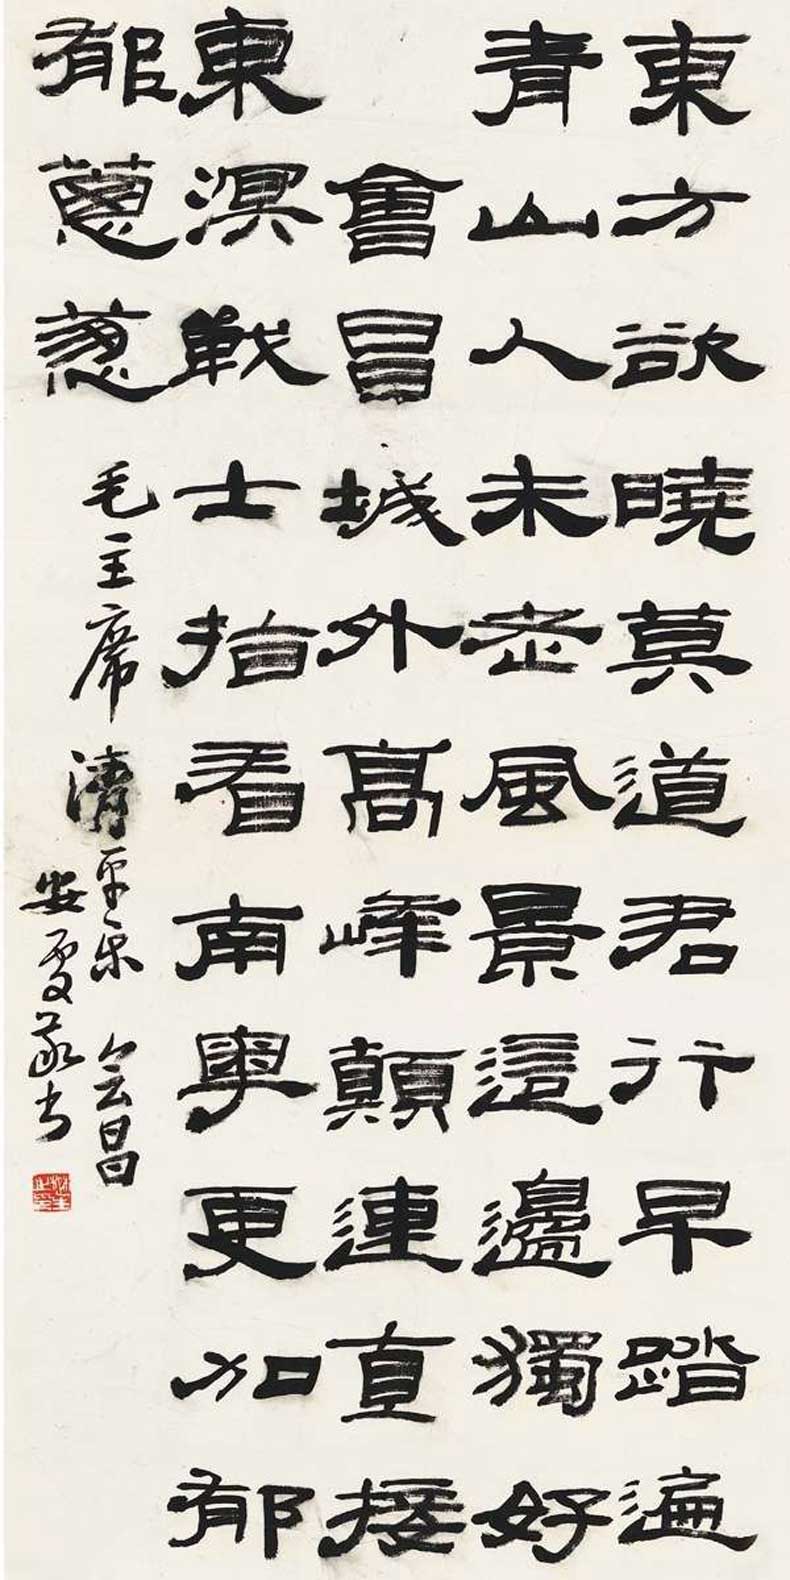 東方欲曉莫道君行早踏遍
青山人未老風景這邊獨好
會昌城外高峰顛連直接
東溟戰士指看南粵更加郁
郁蔥蔥
毛主席清平乐会昌
安敬书